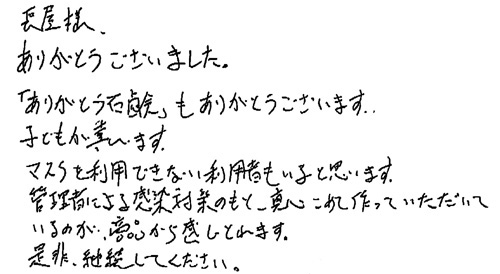 長屋様、
ありがとうございました。
「ありがとう石鹸」もありがとうございます。
子どもが喜びます。
マスクを利用できない利用者もいると思います。
管理者による感染対策のもと、真心こめて作っていただいて
いるのが、商品から感じとれます。
是非、継続してください。